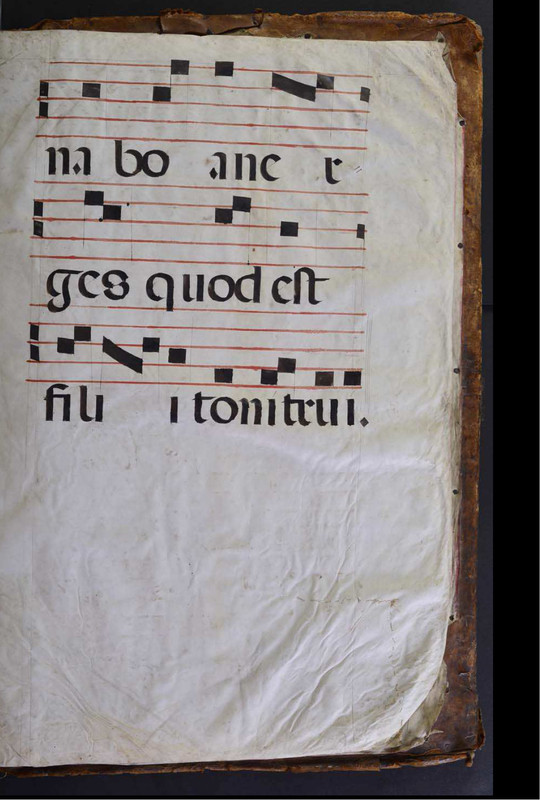 na bo anc r
ges quod est
fili i tonitrui.